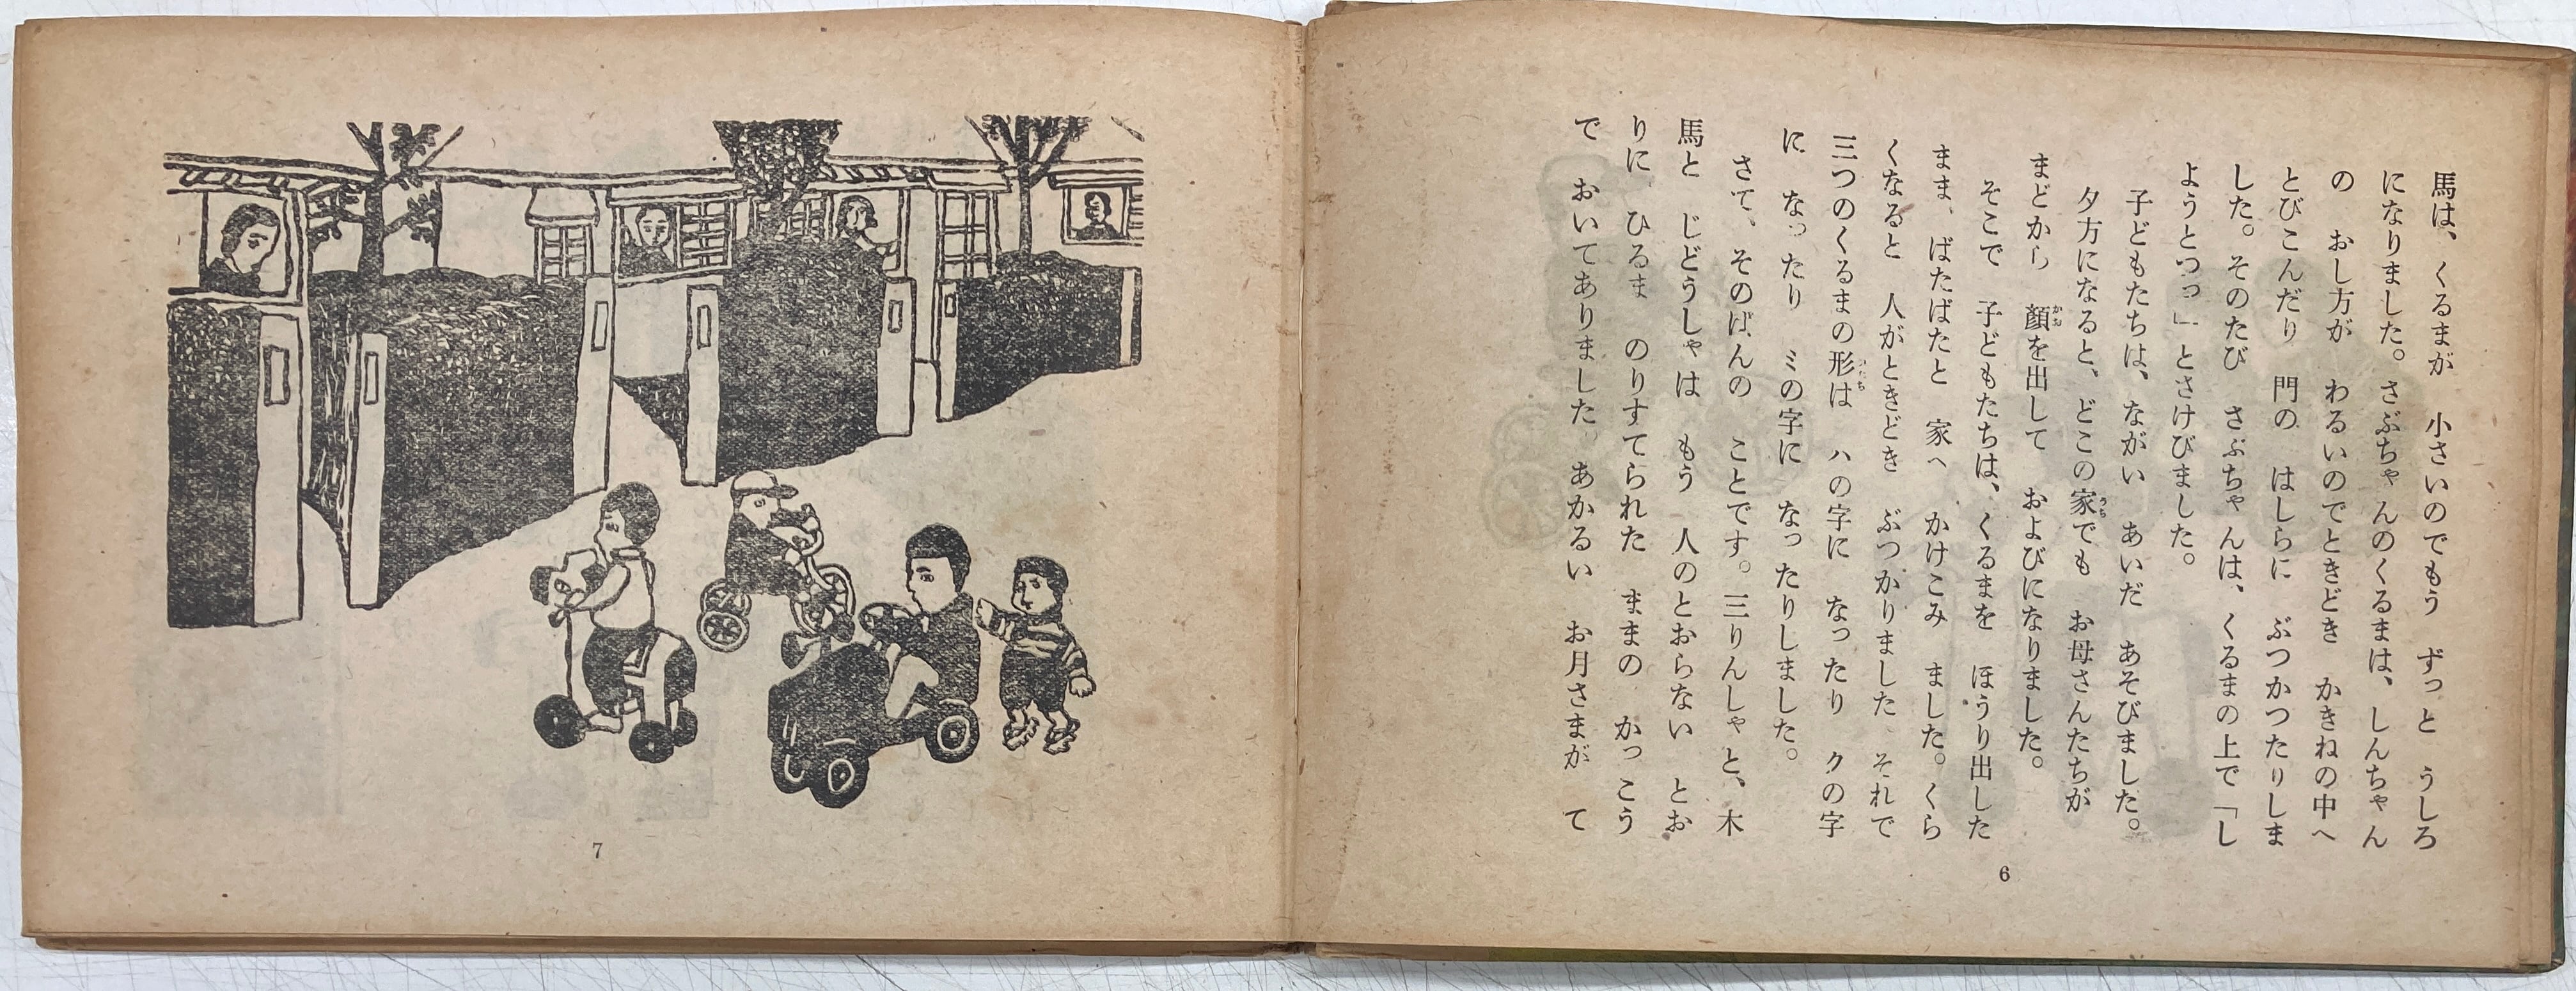 馬は、くるまが 小さいのでもう ずっと うしろ
になりました。さぶちゃんのくるまは、しんちゃん
の おし方が わるいのでときどき かきねの中へ
とびこんだり 門の はしらに ぶつかつたりしま
した。そのたび さぶちゃんは、くるまの上で「し
ようとつっ」とさけびました。
子どもたちは、ながい あいだ あそびました。
夕方になると、どこの家でも お母さんたちが
まどから 顔を出して およびになりました。
そこで 子どもたちは、くるまを ほうり出した
まま、ばたばたと 家へ かけこみ ました。くら
くなると 人がときどき ぶつかりました それで
三つのくるまの形は ハの字に なったり クの字
に なったり ミの字に なったりしました。
さて、そのばんの ことです。三りんしゃと、木
馬と じどうしゃは もう 人のとおらない とお
りに ひるま のりすてられた ままの かっこう
で おいてありました あかるい お月さまが て
6
7